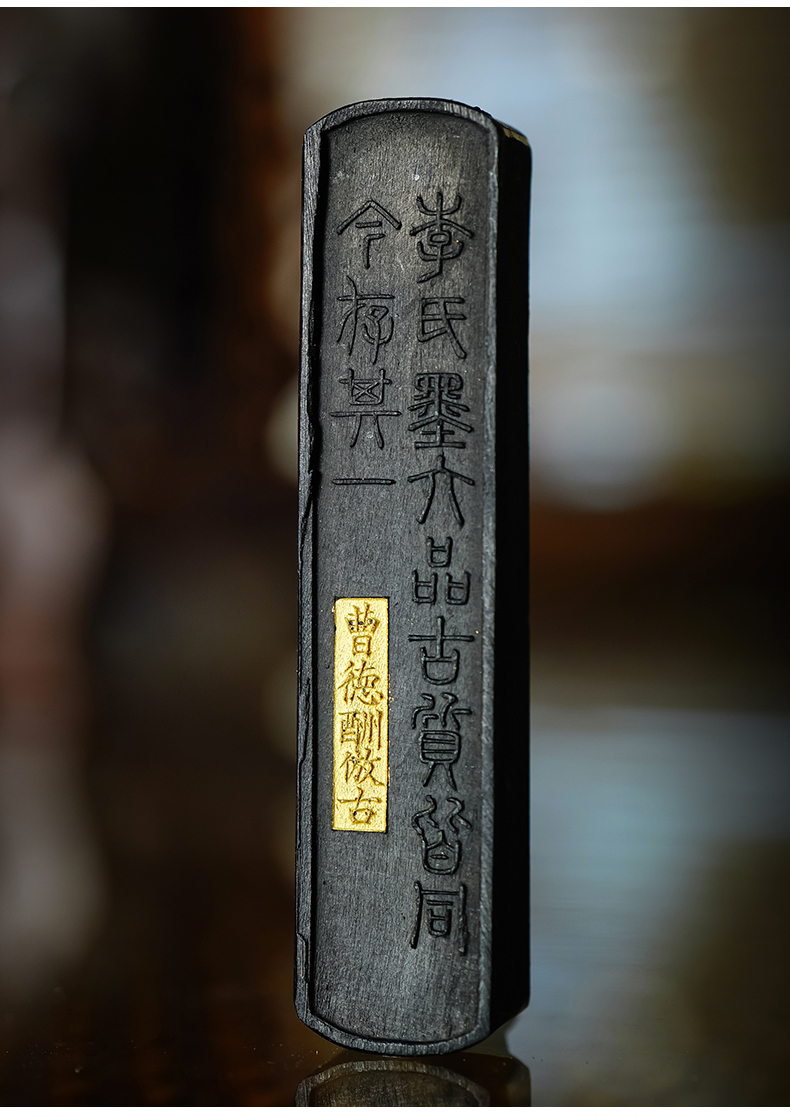 李氏墨六品古質皆同
今存其一
曹德酬倣古